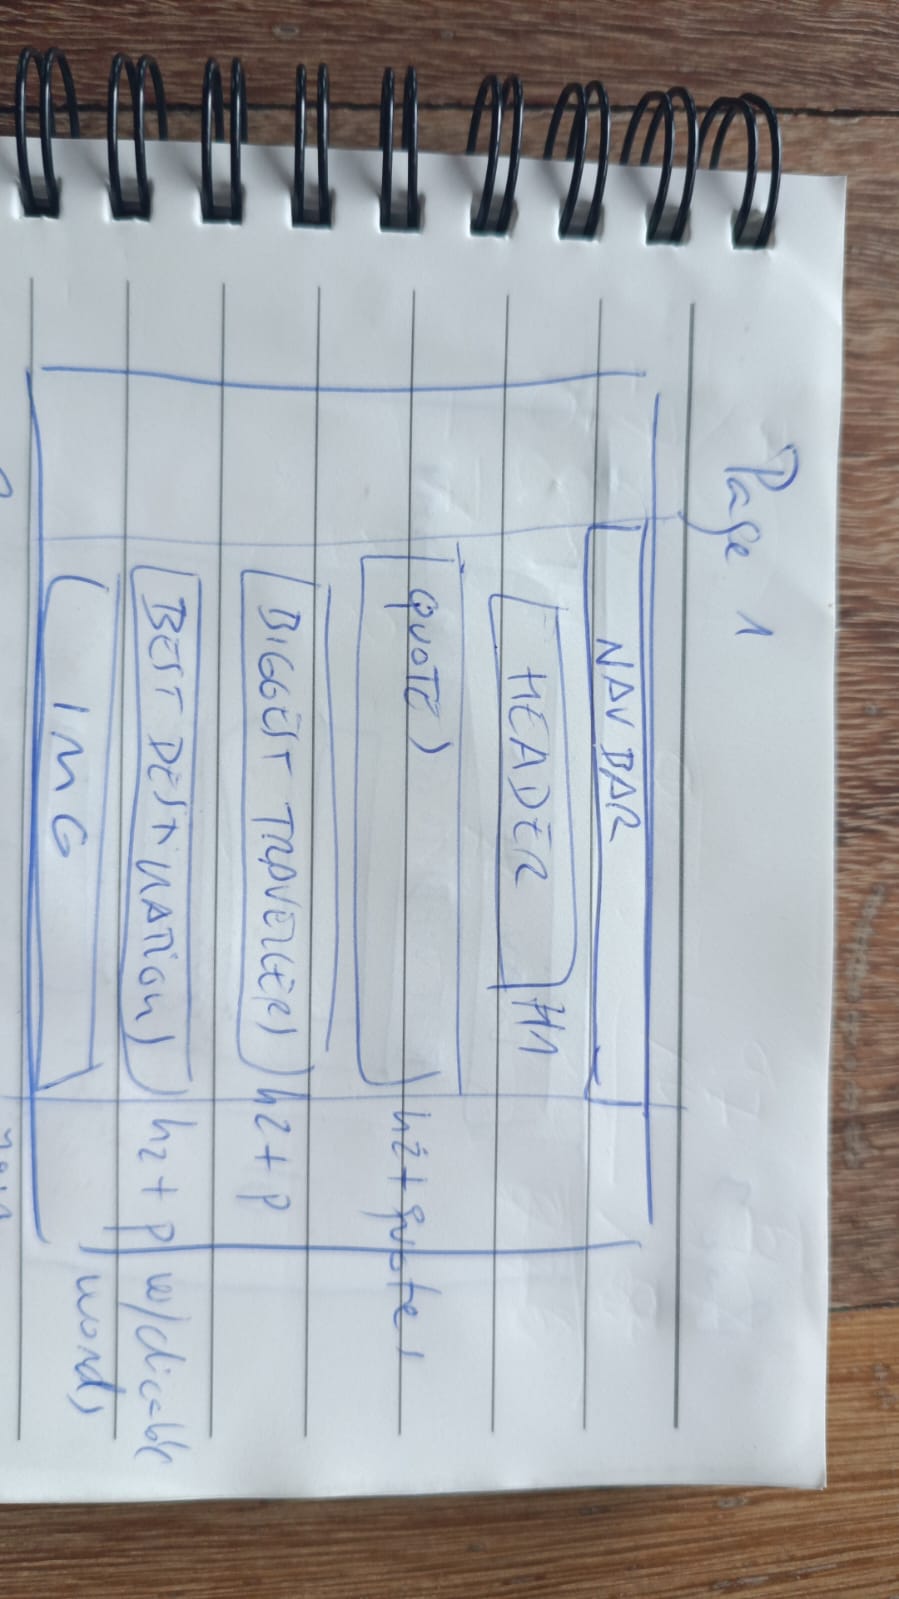 Page 1
NAV BAR
HEADER H1
QUOTES h2 + quotes
BIGGEST TRAVELLERS h2 + p
BEST DESTINATIONS h2 + p w/clicable
words
IMG